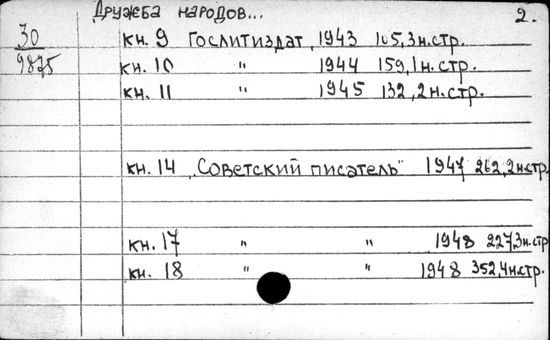 Дружба народов... 2.
30 кн. 9 Гослитиздат, 1943 105,3н.стр.
9875 кн. 10 " 1944 159,1н.стр.
кн. 11 " 1945 132,2н.стр.
кн. 14 „Советский писатель" 1947 262,2н.стр.
кн. 17 " " 1948 227,3н.стр
кн. 18 " " 1948 352,4н.стр.